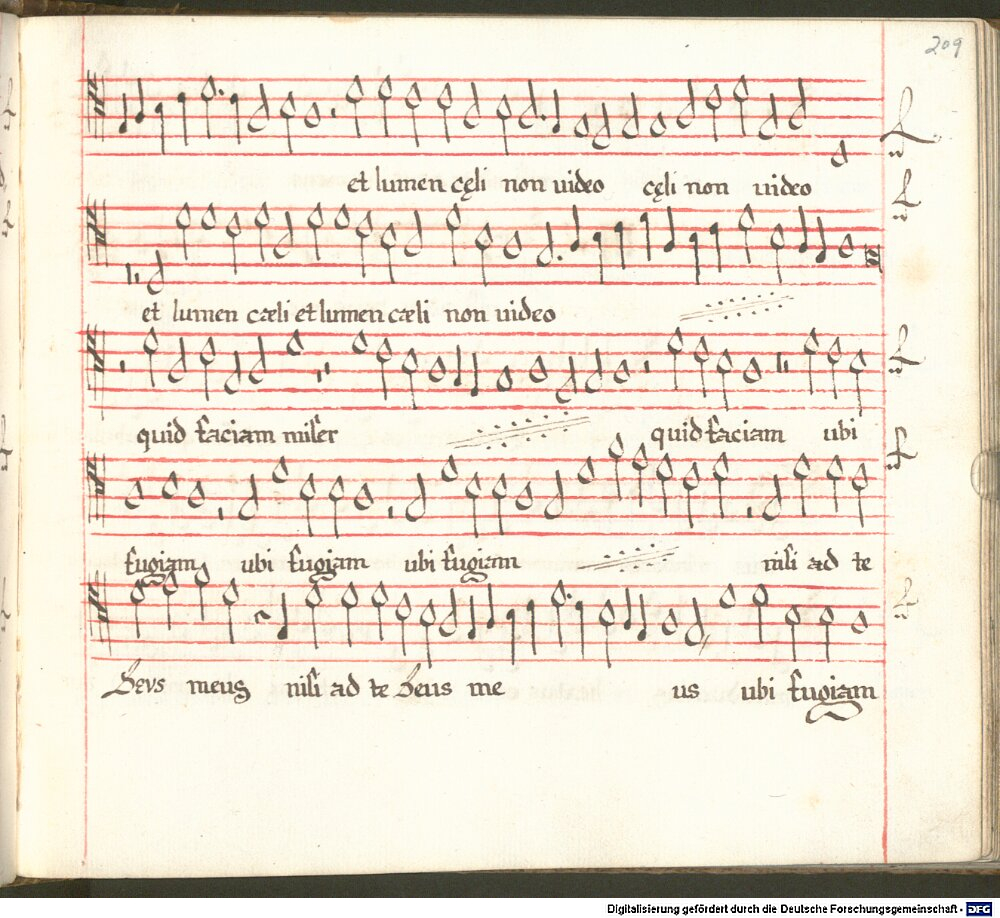 209
et lumen cęli non uideo cęli non uideo
et lumen cæli et lumen cæli non uideo
quid faciam miser quid faciam ubi
fugiam ubi fugiam ubi fugiam nisi ad te
Deus meus nisi ad te Deus me us ubi fugiam
Digitalisierung gefördert durch die Deutsche Forschungsgemeinschaft - DFG